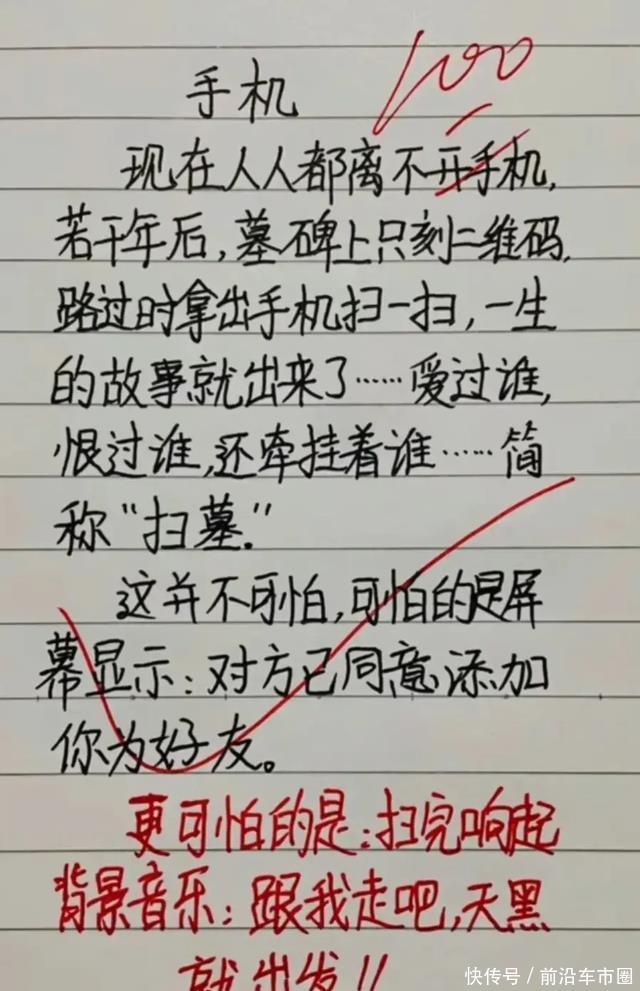 100
手机
现在人人都离不开手机,
若干年后,墓碑上只刻二维码,
路过时拿出手机扫一扫,一生
的故事就出来了……爱过谁,
恨过谁,还牵挂着谁……简
称“扫墓.”
这并不可怕,可怕的是屏
幕显示:对方已同意添加
你为好友。
更可怕的是:扫完响起
背景音乐:跟我走吧,天黑
就出发!!
快传号/前沿车市圈